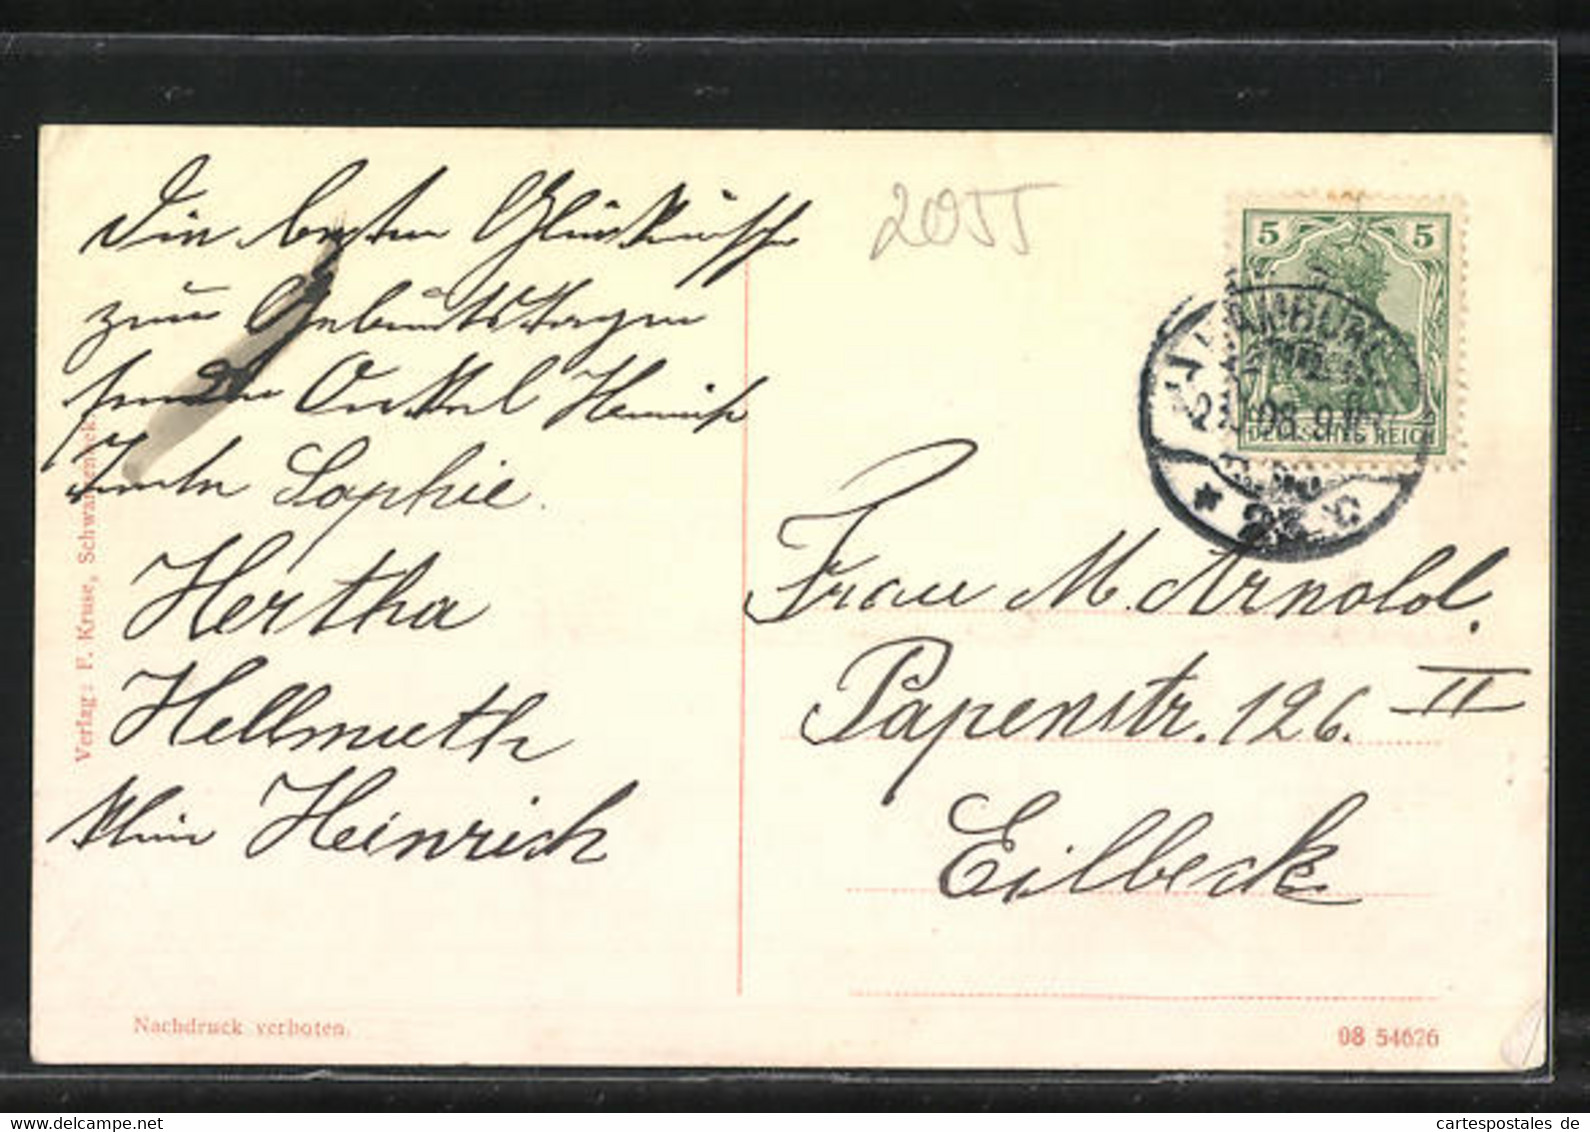 Die besten Glückwünsche
zum Geburtstage
senden Onkel Heinrich
Tante Sophie.
Hertha
Hellmuth
Klein Heinrich
2055
5 5
HAMBURG
08.9
DEUTSCHES REICH
* 23 c
Frau M. Arnold.
Papenstr. 126. II
Eilbeck
Verlag: F. Kruse, Schwarzenbek.
Nachdruck verboten.
08 54626
cartespostales de